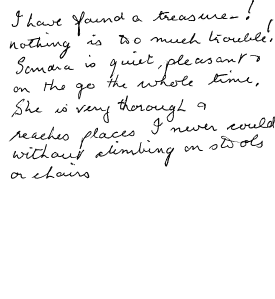 I have found a treasure - !
nothing is too much trouble!
Sandra is quiet, pleasant &
on the go the whole time.
She is very thorough &
reaches places I never could
without climbing on stools
or chairs